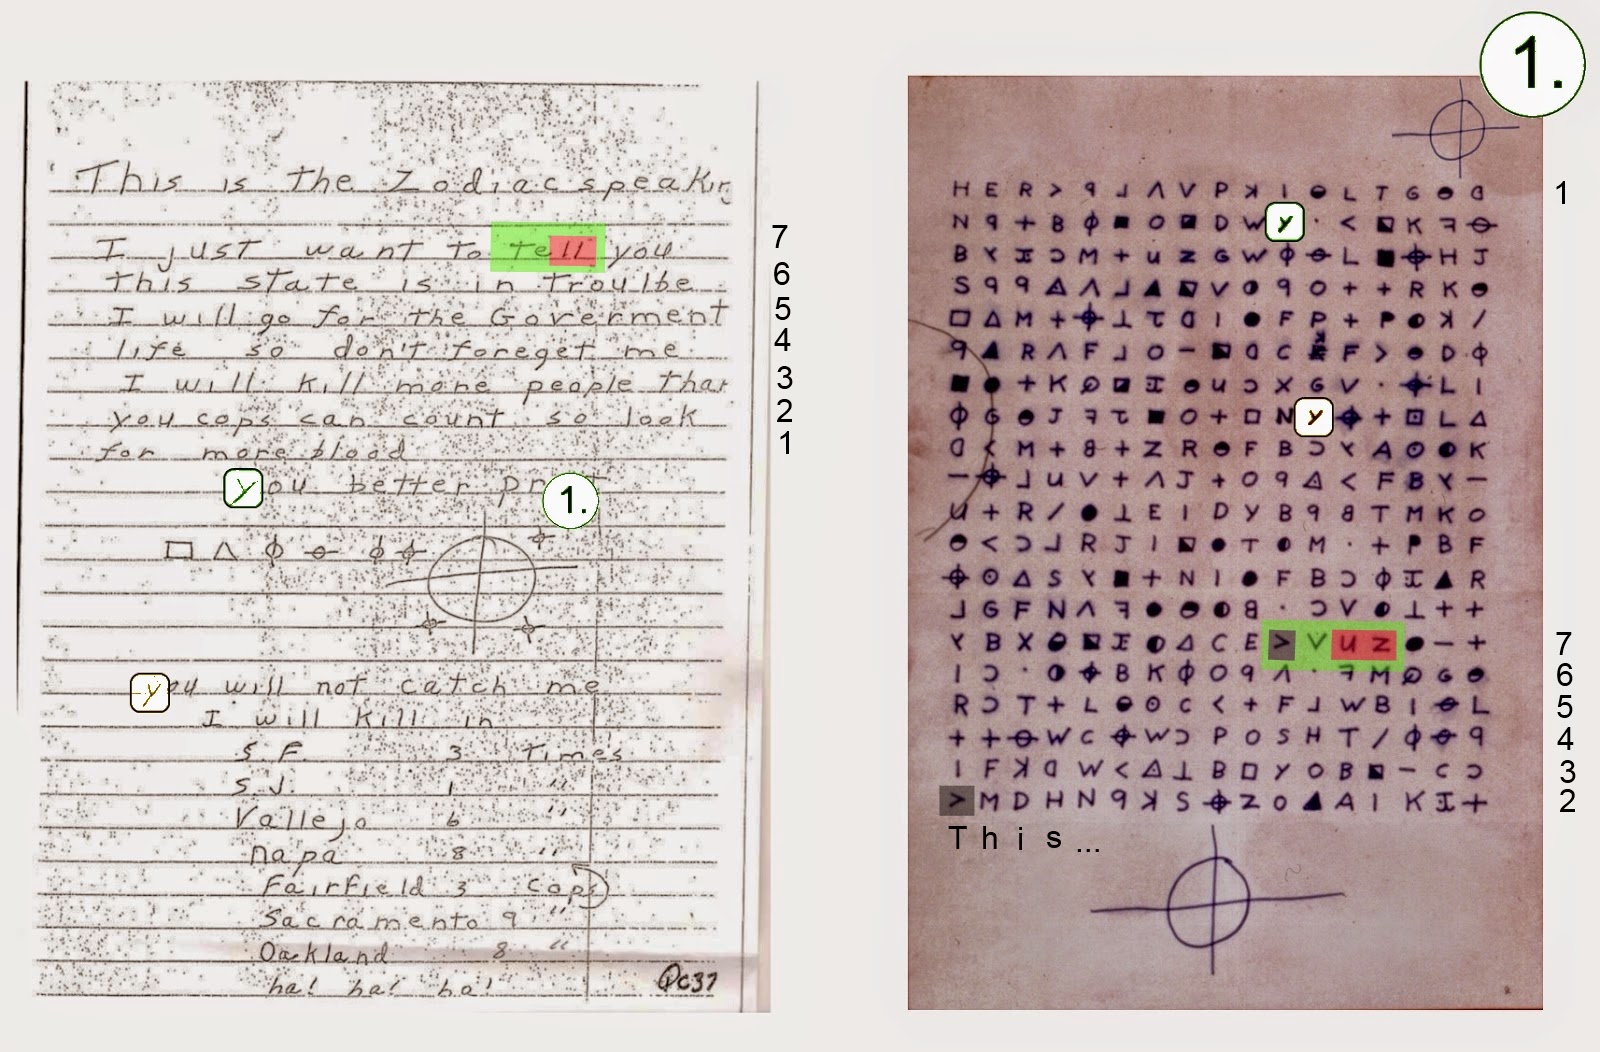 1.
This is the Zodiac speakin
I just want to tell you
this state is in troulbe
I will go for the Goverment
life so don't foreget me
I will kill more people than
you cops can count so look
for more blood
you better pr
1.
you will not catch me
I will kill in
S.F. 3 Times
S.J. 1 "
Vallejo 6 "
napa 8 "
Fairfield 3 Cops
Sacramento 9 "
Oakland 8 "
ha! ha! ha!
QC37
7
6
5
4
3
2
1
H E R > 9 ⅃ Λ V P ꓘ I ◒ L T G ◒ ᗡ
N 9 + B ϕ ■ O ◪ D W y · < ◪ K ꟻ ⊖
B Y ⌶ Ɔ M + U Z G W ϕ ⊖ L ■ ⌖ H J
S 9 9 △ Λ ⅃ ▲ ◪ V ◑ 9 O + + R K ◒
□ △ M + ⌖ ⊥ τ ᗡ I ● F P + P ◑ ꓘ /
9 ▲ R Λ F ⅃ O – ◪ ᗡ C F > ◒ D ϕ
■ ● + K ⊘ ◪ ⌶ ◒ U Ɔ X G V · ⌖ L I
ϕ G ◒ J ꟻ τ ■ O + □ N y ⌖ + ⊡ L △
ᗡ < M + 8 + Z R ◒ F B Ɔ Y A ⊙ ◑ K
– ⌖ ⅃ U V + Λ J + O 9 △ < F B Y –
U + R / ● ⊥ E I D Y B 9 8 T M K O
◒ < Ɔ ⅃ R J I ◪ ● T ◑ M · + P B F
⌖ ⊙ △ S Y ■ + N I ● F B Ɔ ϕ ⌶ ▲ R
⅃ G F N Λ ꟻ ● ◒ ◑ 8 · Ɔ V ◑ ⊥ + +
Y B X ◒ ◪ ⌶ ◑ △ C E > V U Z ● – +
I Ɔ · ◑ ⌖ B K ϕ O 9 Λ · ꟻ M ⊘ G ◒
R Ɔ T + L ◒ ⊙ C < + F ⅃ W B I ⊖ L
+ + ⊖ W C ⌖ W Ɔ P O S H T / ϕ ⊖ 9
I F ꓘ ᗡ W < △ ⊥ B □ Y O B ◪ – C Ɔ
> M D H N 9 ꓘ S ⌖ Z O ▲ A I K ⌶ +
This...
1
7
6
5
4
3
2